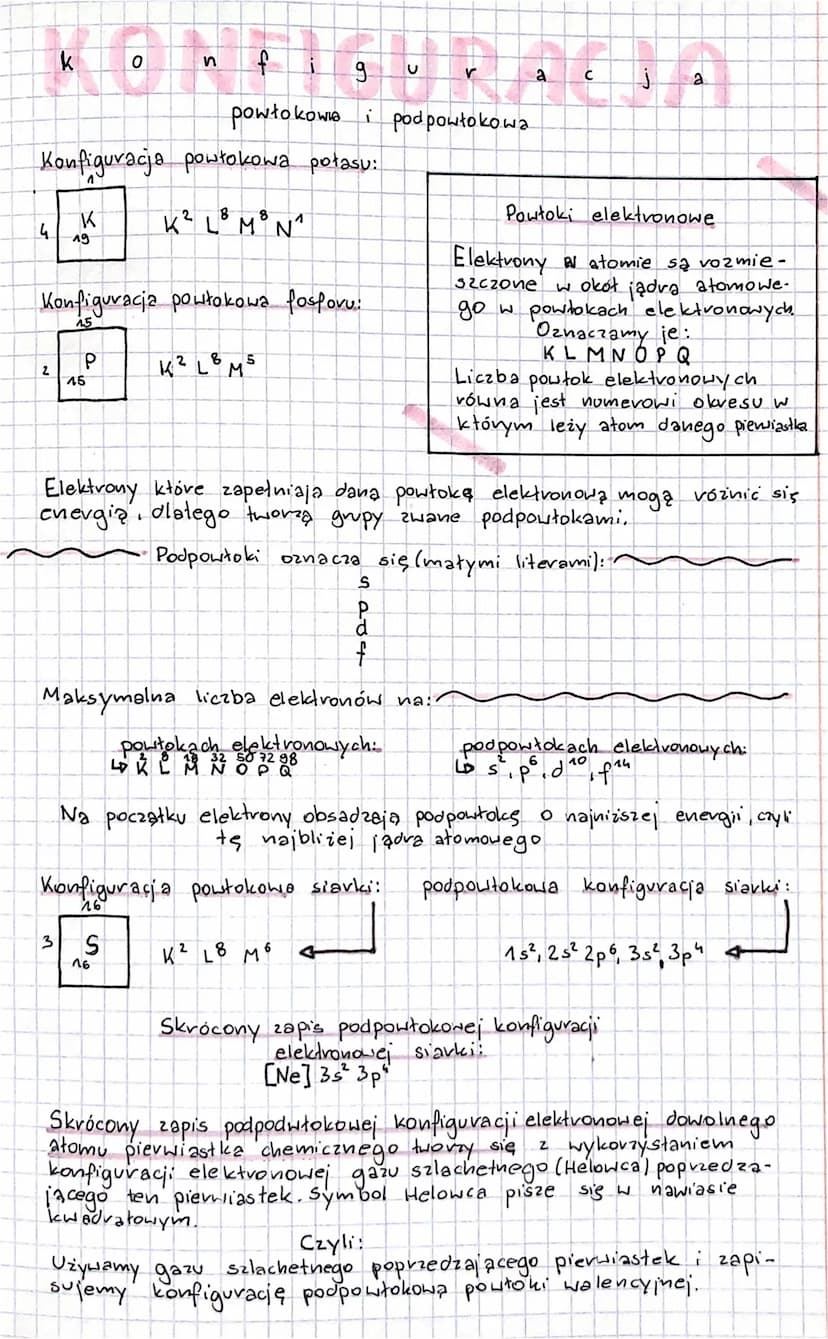 KONFIGURACJA
konfiguracja
powłokowa i podpowłokowa
Konfiguracja powłokowa potasu:
1
4 K
19
K² L⁸ M⁸ N¹
Konfiguracja powłokowa fosforu:
15
2 P
15
K² L⁸ M⁵
Powłoki elektronowe
Elektrony w atomie są rozmie-
szczone w okół jądra atomowe-
go w powłokach elektronowych
Oznaczamy je:
K L M N O P Q
Liczba powłok elektronowych
równa jest numerowi okresu w
którym leży atom danego pierwiastka
Elektrony które zapełniają daną powłokę elektronową mogą różnić się
energią, dlatego tworzą grupy zwane podpowłokami.
Podpowłoki oznacza się (małymi literami):
s
p
d
f
Maksymalna liczba elektronów na:
powłokach elektronowych:
2 8 18 32 50 72 98
↳ K L M N O P Q
podpowłokach elektronowych:
↳ s², p⁶, d¹⁰, f¹⁴
Na początku elektrony obsadzają podpowłokę o najniższej energii, czyli
tę najbliżej jądra atomowego
Konfiguracja powłokowa siarki:
16
3 S
16
K² L⁸ M⁶
podpowłokowa konfiguracja siarki:
1s², 2s² 2p⁶, 3s², 3p⁴
Skrócony zapis podpowłokowej konfiguracji
elektronowej siarki:
[Ne] 3s² 3p⁴
Skrócony zapis podpodwłokowej konfiguracji elektronowej dowolnego
atomu pierwiastka chemicznego tworzy się z wykorzystaniem
konfiguracji elektronowej gazu szlachetnego (Helowca) poprzedza-
jącego ten pierwiastek. Symbol Helowca pisze się w nawiasie
kwadratowym.
Czyli:
Używamy gazu szlachetnego poprzedzającego pierwiastek i zapi-
sujemy konfigurację podpowłokową powłoki walencyjnej.